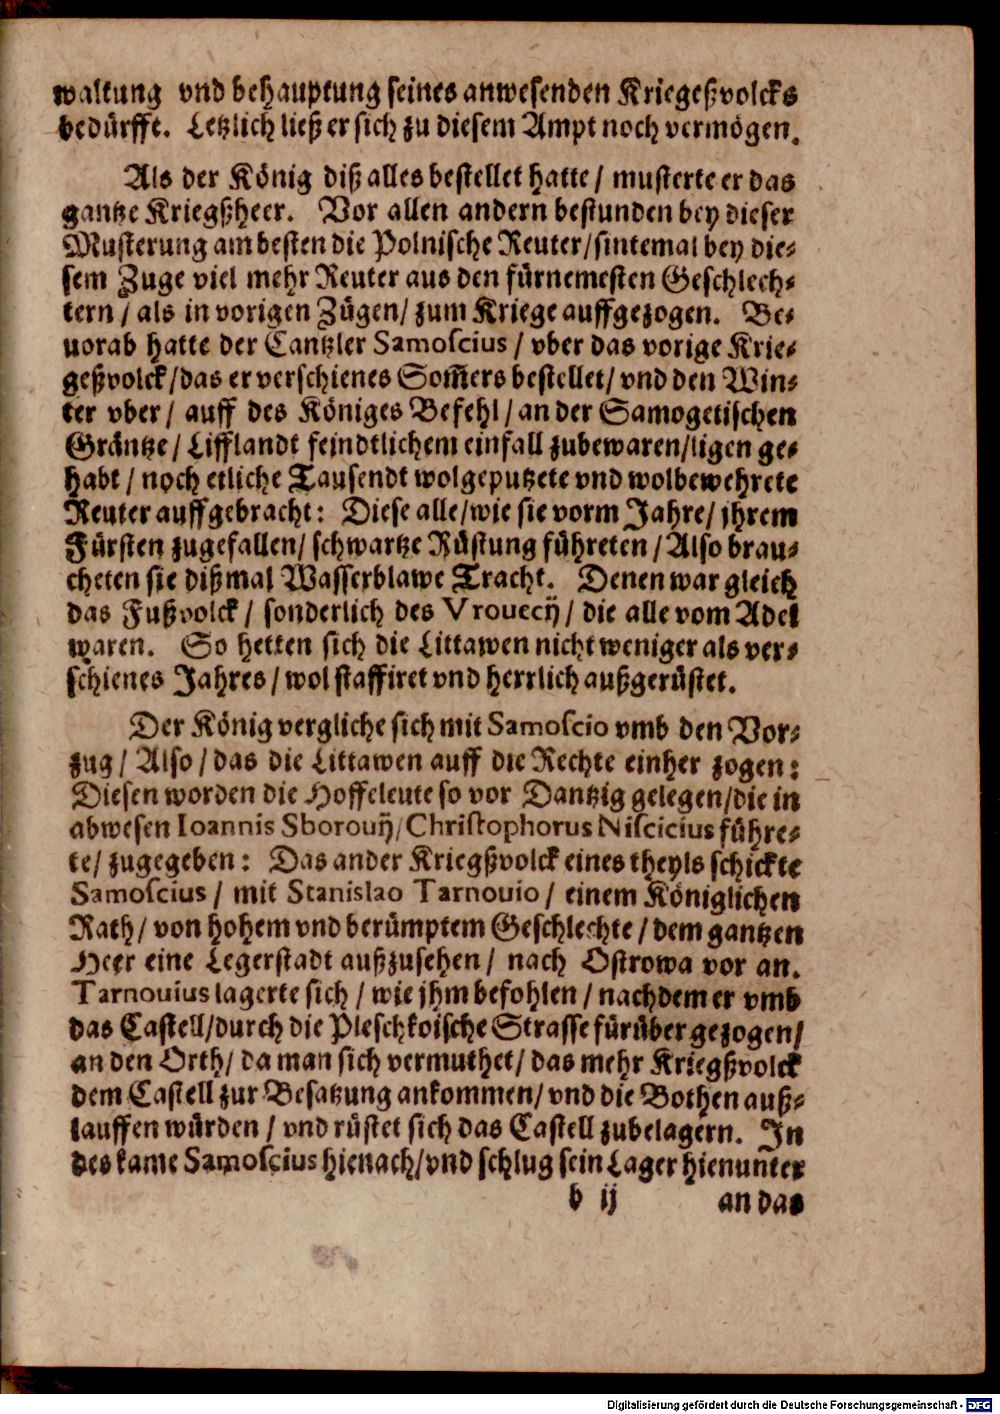 waltung vnd behauptung seines anwesenden Kriegeßvolcks
bedürfft. Letzlich ließ er sich zu diesem Ampt noch vermögen.
Als der König diß alles bestellet hatte / musterte er das
gantze Kriegßheer. Vor allen andern bestunden bey dieser
Musterung am besten die Polnische Reuter / sintemal bey die-
sem Zuge viel mehr Reuter aus den fürnemesten Geschlech-
tern / als in vorigen Zügen / zum Kriege auffgezogen. Be-
uorab hatte der Cantzler Samoscius / vber das vorige Krie-
geßvolck / das er verschienes Som̃ers bestellet / vnd den Win-
ter vber / auff des Königes Befehl / an der Samogetischen
Gräntze / Lifflandt feindtlichem einfall zubewaren / ligen ge-
habt / noch etliche Tausendt wolgeputzete vnd wolbewehrete
Reuter auffgebracht: Diese alle / wie sie vorm Jahre / jhrem
Fürsten zugefallen / schwartze Rüstung führeten / Also brau-
cheten sie dißmal Wasserblawe Tracht. Denen war gleich
das Fußvolck / sonderlich des Vrouecij / die alle vom Adel
waren. So hetten sich die Littawen nicht weniger als ver-
schienes Jahres / wol staffiret vnd herrlich außgerüstet.
Der König vergliche sich mit Samoscio vmb den Vor-
zug / Also / das die Littawen auff die Rechte einher zogen:
Diesen worden die Hoffeleute so vor Dantzig gelegen / die in
abwesen Ioannis Sborouij / Christophorus Niscicius führe-
te / zugegeben: Das ander Kriegßvolck eines theyls schickte
Samoscius / mit Stanislao Tarnouio / einem Königlichen
Rath / von hohem vnd berümptem Geschlechte / dem gantzen
Heer eine Legerstadt außzusehen / nach Ostrowa vor an.
Tarnouius lagerte sich / wie jhm befohlen / nachdem er vmb
das Castell / durch die Pleschkoische Strasse fürüber gezogen /
an den Orth / da man sich vermuthet / das mehr Kriegßvolck
dem Castell zur Besatzung ankommen / vnd die Bothen auß-
lauffen würden / vnd rüstet sich das Castell zubelagern. In
des kame Samoscius hienach / vnd schlug sein Lager hienunter
b ij an das
Digitalisierung gefördert durch die Deutsche Forschungsgemeinschaft - DFG